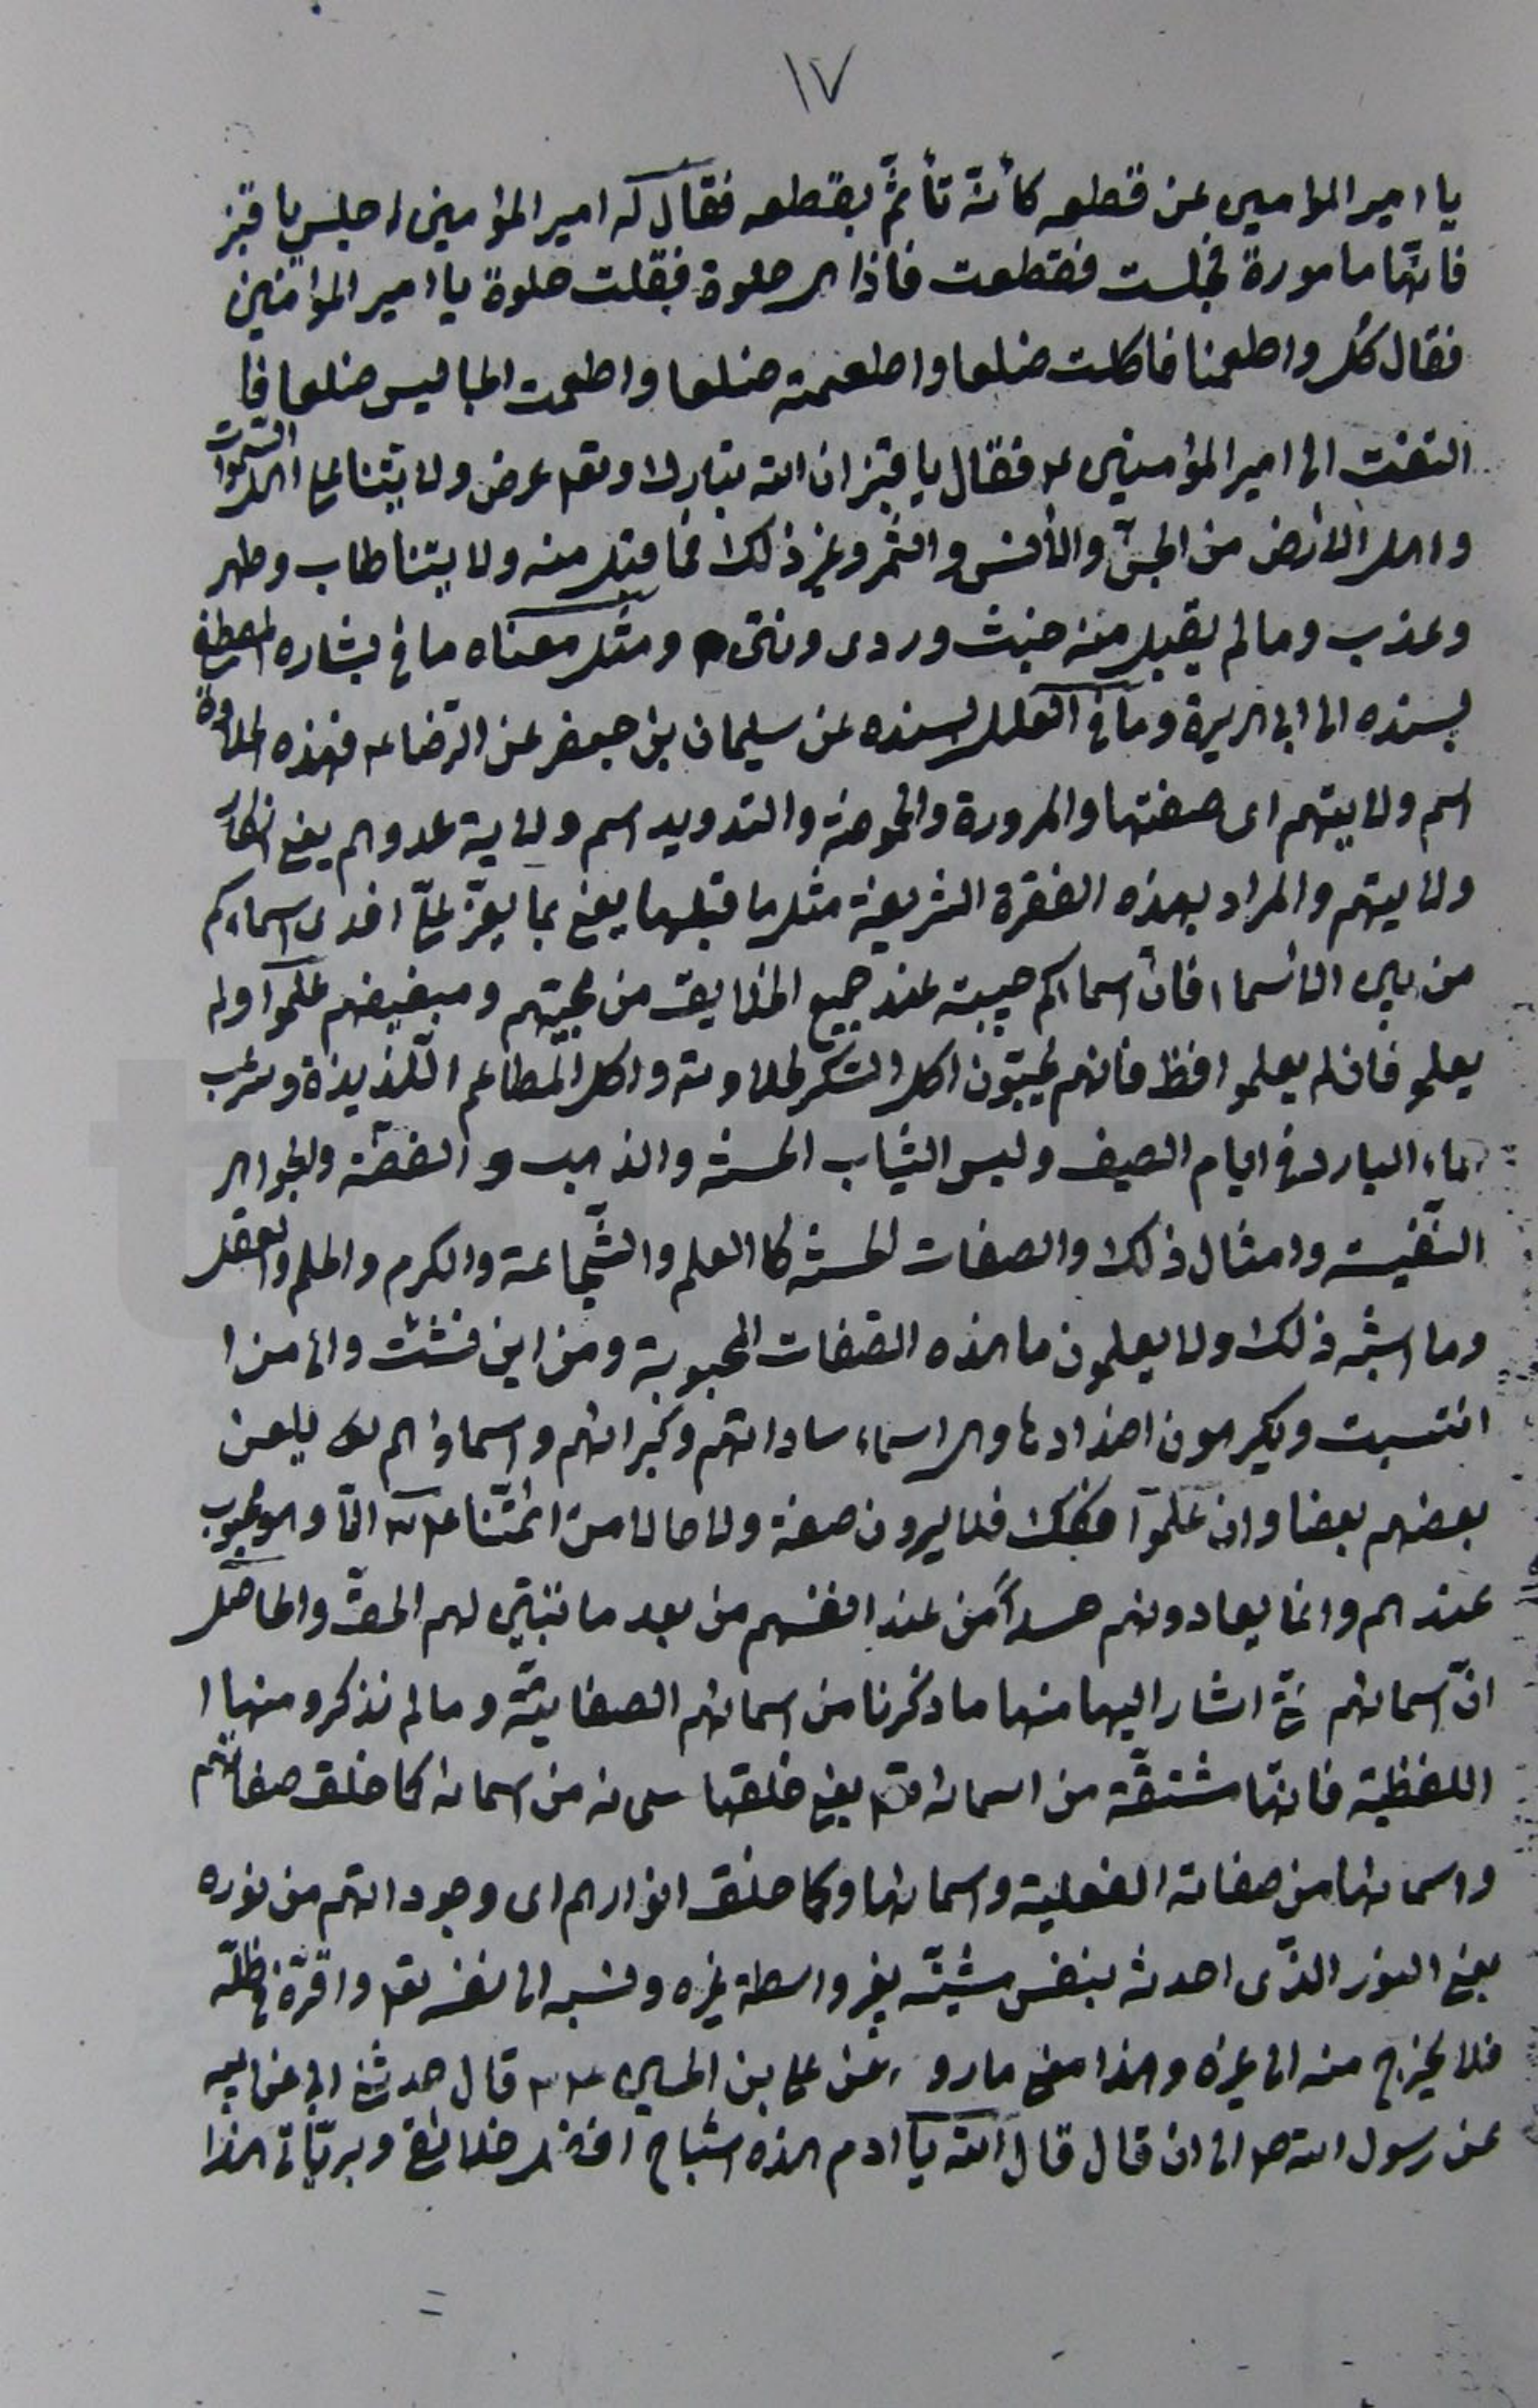 ١٧
يا امير المؤمنين عن قطعه كأنه تأثم بقطعه فقال له امير المؤمنين اجلس يا قنبر
فانها مامورة فجلست فقطعت فاذا هى حلوة فقلت حلوة يا امير المؤمنين
فقال كل واطعمنا فاكلت ضلعا واطعمته ضلعا واطعمت الجاليس ضلعا فا
التفت الى امير المؤمنين ع فقال يا قنبر ان الله تبارك وتعه عرض ولايتنا على اهل السموات
واهل الارض من الجن والانس والثمر وغير ذلك فما قبل منه ولايتنا طاب وطهر
وعذب وما لم يقبل منه خبث وردى ونتن ومثل معناه ما فى بشارة المصطفى
بسنده الى ابى هريرة وما فى العلل بسنده عن سليمان بن جعفر عن الرضا ع فهذه الحلاوة
اسم ولايتهم اى صفتها والمرورة والحموضة والتدويد اسم ولاية عدوهم يعنى انكار
ولايتهم والمراد بهذه الفقرة الشريفة مثل ما قبلها يعنى بما يعز على افدى اسماءكم
من بين الاسماء فان اسماءكم حبيبة عند جميع الخلايق من محبيهم ومبغضهم علموا ولم
يعلمو فان لم يعلموا فظ فانهم يحبون اكل السكر لحلاوته واكل المطاعم اللذيذة وشرب
الماء البارد فى ايام الصيف ولبس الثياب الحسنة والذهب والفضة والجواهر
النفيسة وامثال ذلك والصفات الحسنة كالعلم والشجاعة والكرم والحلم والعقل
وما اشبه ذلك ولا يعلمون ما هذه الصفات المحبوبة ومن اين نشئت والى من ا
انتسبت ويكرهون اضدادها وهى اسماء ساداتهم وكبرائهم واسماؤهم يلعن
بعضهم بعضا وان علموا فكك فلا يرون صفة ولا حالا من ائمتنا ع الا وهو محبوب
عندهم وانما يعادونهم حسداً من عند انفسهم من بعد ما تبين لهم الحق والحاصل
ان اسمائهم اشار اليها منها ما ذكرنا من اسمائهم الصفاتية وما لم نذكر ومنها ا
اللفظية فانها مشتقة من اسمائه تعه يعنى خلقها سبحانه من اسمائه كما خلق صفاتهم
واسمائها من صفاته الفعلية واسمائها وكما خلق انوارهم اى وجوداتهم من نوره
يعنى النور الذى احدثه بنفس مشيته بغير واسطة غيره ونسبه الى نفسه تعه واقره فى ظله
فلا يخرج منه الى غيره وهذا معنى ما روى عن على بن الحسين ع قال حدثنى ابى عن ابيه
عن رسول الله ص الى ان قال قال الله يا ادم هذه اشباح افضل خلائقى وبرياتى هذا